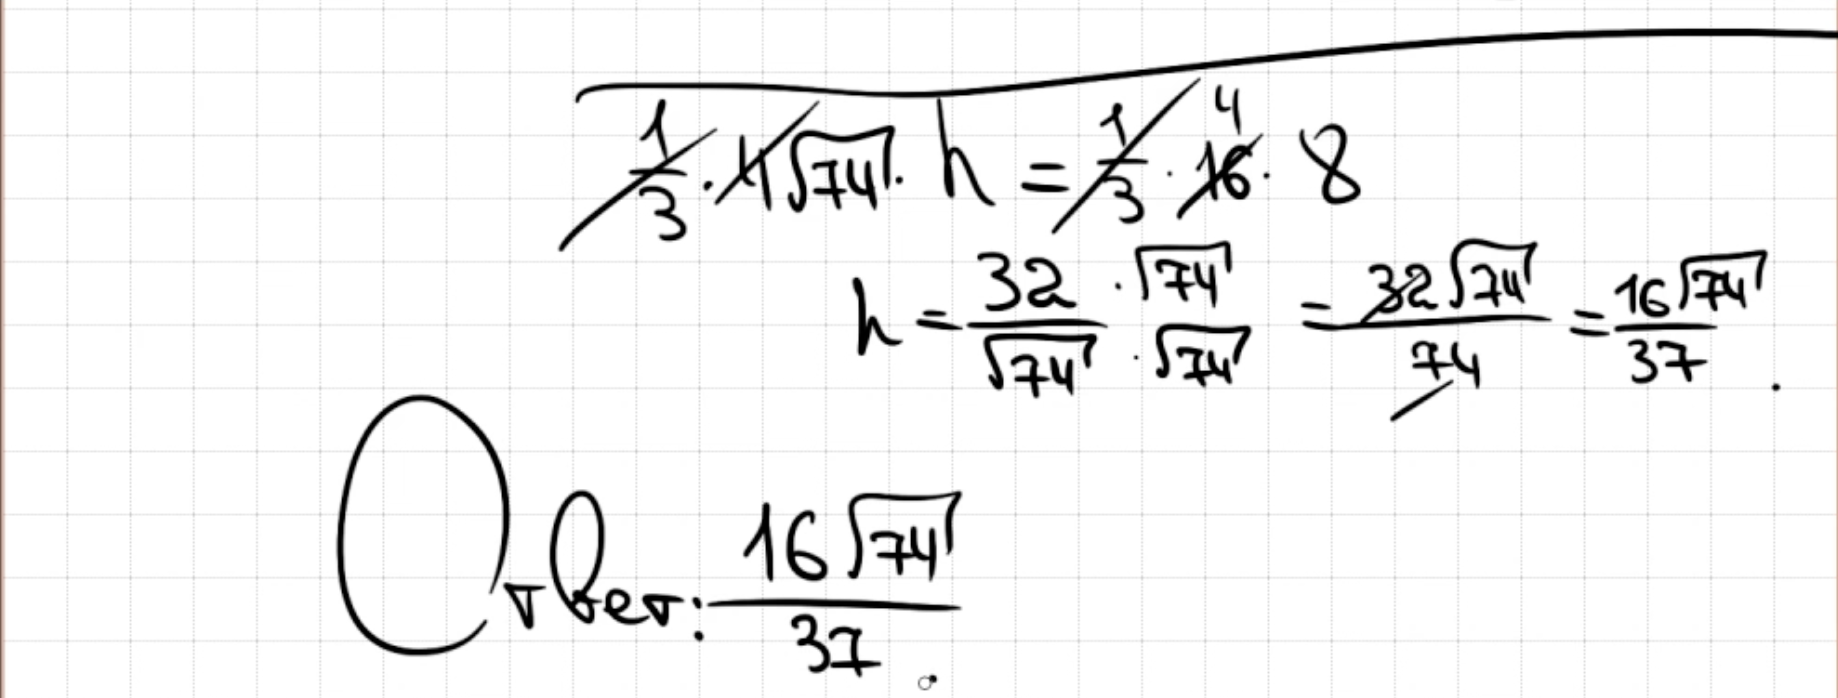 1/3 · 4√74 · h = 1/3 · 16 4 · 8
h = 32 · √74 / √74 · √74 = 32√74 / 74 = 16√74 / 37 .
Ответ: 16√74 / 37 .